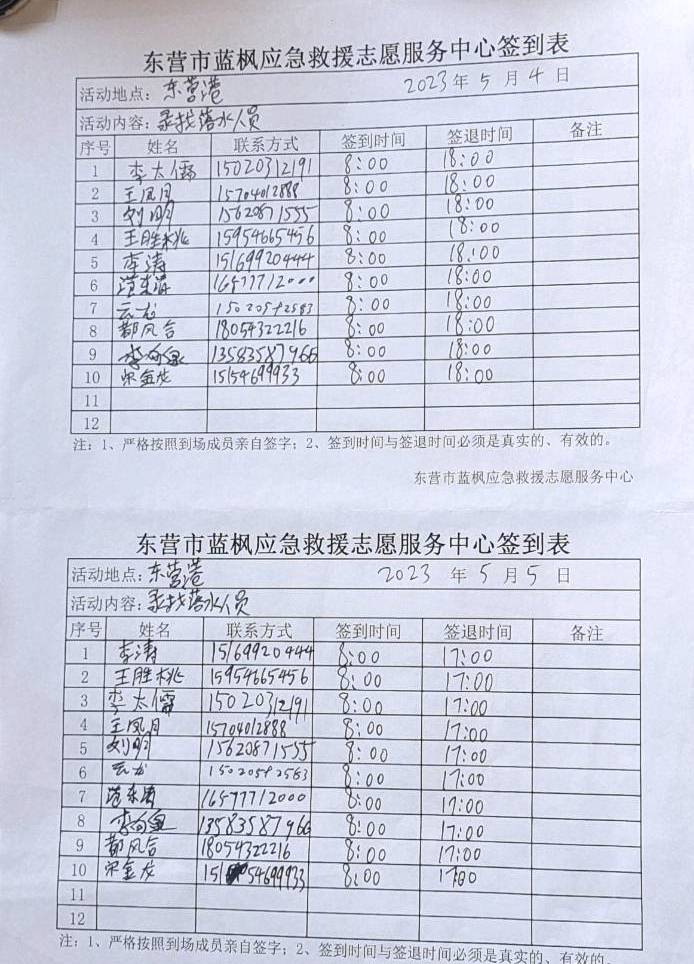 东营市蓝枫应急救援志愿服务中心签到表
活动地点：东营港 2023年5月4日
活动内容：寻找落水人员
序号 姓名 联系方式 签到时间 签退时间 备注
1 李太儒 15020312191 8:00 18:00
2 王凤月 15704012888 8:00 18:00
3 刘明 15620871555 8:00 18:00
4 王胜桃 15954665456 8:00 18:00
5 李涛 15169920444 8:00 18:00
6 16577712000 8:00 18:00
7 云龙 15020592583 8:00 18:00
8 郝风合 18054322216 8:00 18:00
9 13583587966 8:00 18:00
10 宋金龙 15154699933 8:00 18:00
11
12
注：1、严格按照到场成员亲自签字；2、签到时间与签退时间必须是真实的、有效的。
东营市蓝枫应急救援志愿服务中心
东营市蓝枫应急救援志愿服务中心签到表
活动地点：东营港 2023年5月5日
活动内容：寻找落水人员
序号 姓名 联系方式 签到时间 签退时间 备注
1 李涛 15169920444 8:00 17:00
2 王胜桃 15954665456 8:00 17:00
3 李太儒 15020312191 8:00 17:00
4 王凤月 15704012888 8:00 17:00
5 刘明 15620871555 8:00 17:00
6 云龙 15020592583 8:00 17:00
7 16577712000 8:00 17:00
8 13583587966 8:00 17:00
9 郝风合 18054322216 8:00 17:00
10 宋金龙 15154699933 8:00 17:00
11
12
注：1、严格按照到场成员亲自签字；2、签到时间与签退时间必须是真实的、有效的。